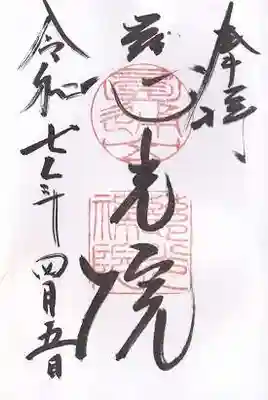 奉拝
慈光院
令和七年四月五日